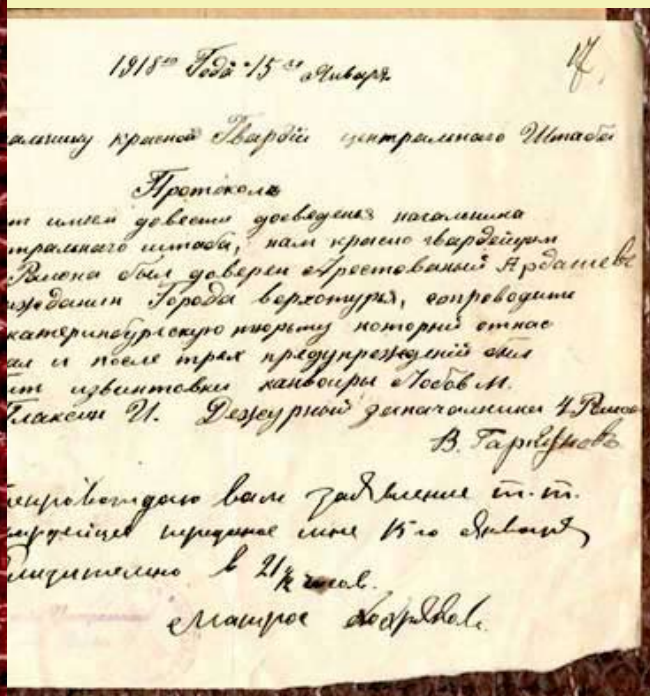 1918го Года 15го Января
17
альнику красной Гвардии центрального Штаба
Протокол
т имеем довести до сведения начальника
трального штаба, нам красно гвардейцам
Района был доверен Арестованный Ардашевъ
жданин Города Верхотурья, сопроводить
катеринбургскую тюрьму который от нас
ал и после трех предупреждений был
ит из винтовки канвоиры Лобов М.
Плаксин И. Дежурный за начальника 4 Района
В.
препровождаю вам заявление т.т.
гвардейцев переданое мне 15го Января
в 21 часов.
Матрос Хохряков.